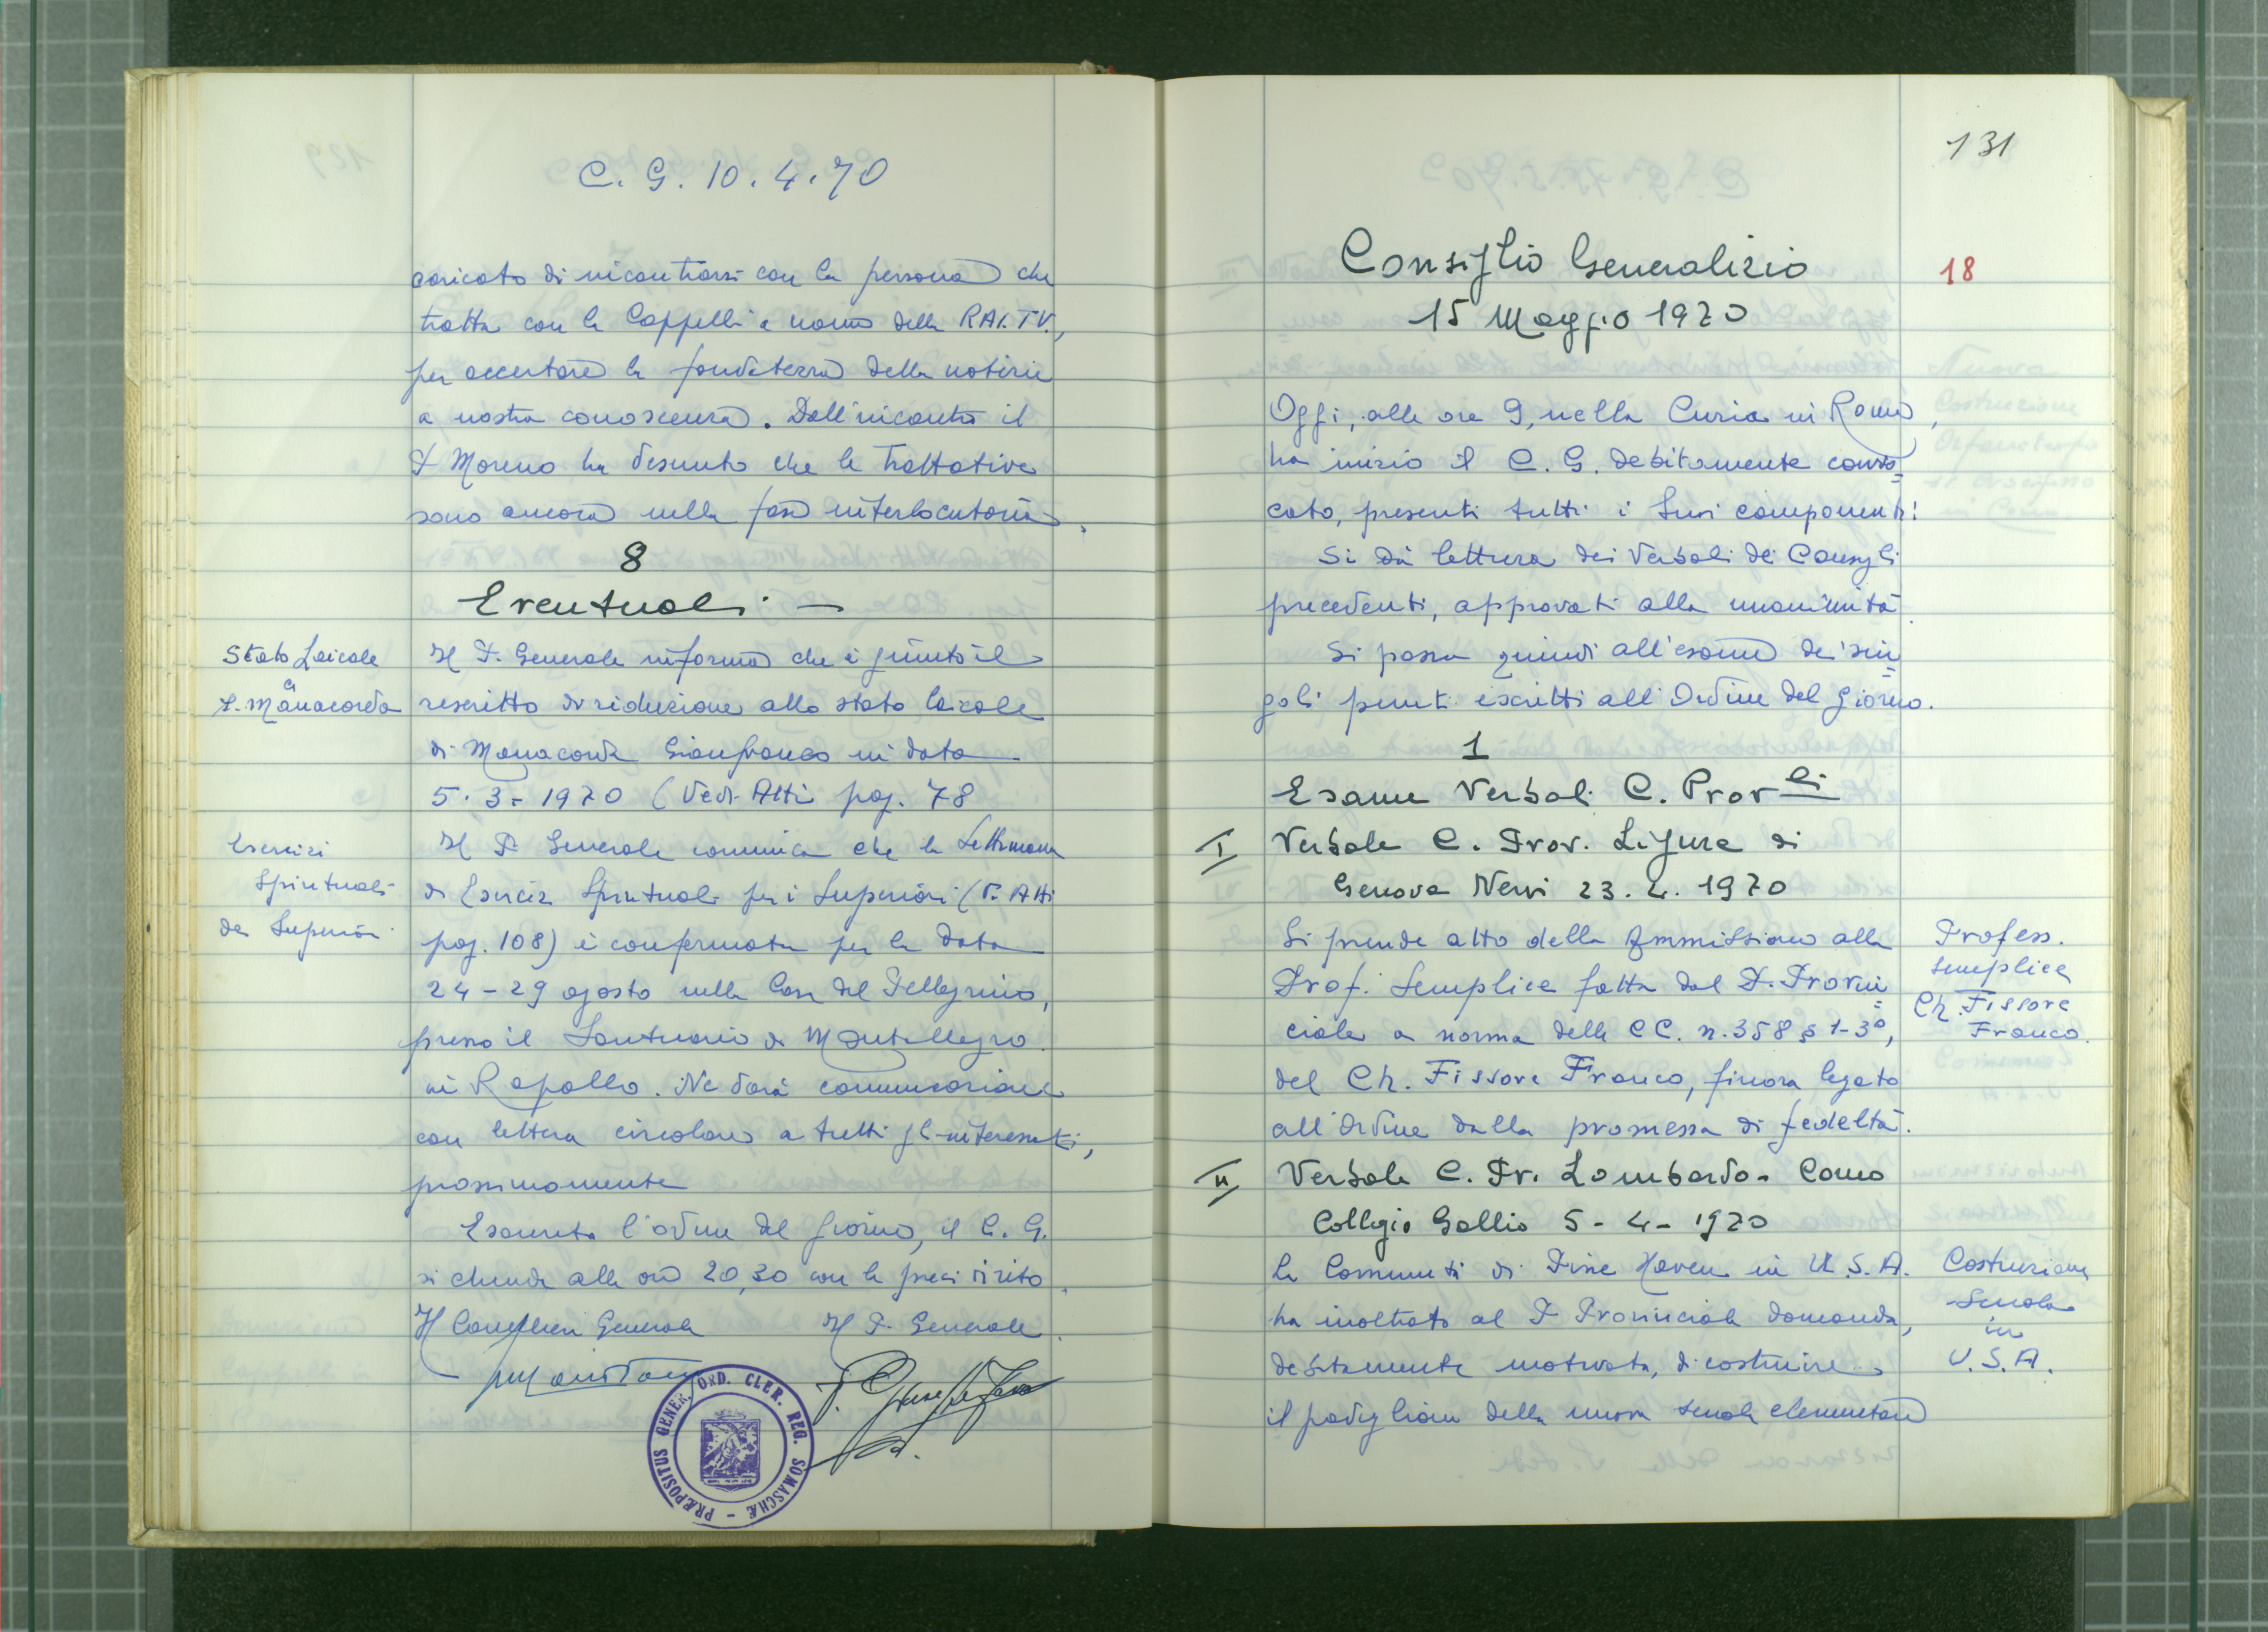 C. G. 10.4.70
caricato di incontrarsi con la persona che
tratta con la Cappelli a nome della RAI.TV.,
per accertare la fondatezza della notizie
a nostra conoscenza. Dall'incontro il
P. Moreno ha desunto che le trattative
sono ancora nella fase interlocutoria.
8
Eventuali. —
Stato Laicale
P. Manacorda
Il P. Generale informa che è giunto il
rescritto di riduzione allo stato laicale
di Manacorda Gianfranco in data
5.3.1970 (Vedi Atti pag. 78
Esercizi
Spirituali
dei Superiori
Il P. Generale comunica che la Settimana
di Esercizi Spirituali per i Superiori (V. Atti
pag. 108) è confermata per la data
24-29 agosto nella Casa del Pellegrino,
presso il Santuario di Montallegro
in Rapallo. Ne darà comunicazione
con lettera circolare a tutti gl'interessati,
prossimamente
Esaurito l'ordine del giorno, il C. G.
si chiude alle ore 20,30 con le preci di rito.
Il Cancelliere Generale Il P. Generale.
PRÆPOSITUS GENER. ORD. CLER. REG. SOMASCHÆ -
131
Consiglio Generalizio
18
15 Maggio 1970
Oggi, alle ore 9, nella Curia in Roma,
ha inizio il C. G. debitamente convo=
cato, presenti tutti i suoi componenti:
Si dà lettura dei Verbali dei Consigli
precedenti, approvati alla unanimità.
Si passa quindi all'esame dei sin=
goli punti iscritti all'Ordine del Giorno.
1
Esame Verbali C. Prov.li
I Verbale C. Prov. Ligure di
Genova Nervi 23.2.1970
Si prende atto della Ammissione alla
Prof. Semplice fatta dal P. Provin=
ciale a norma delle CC. n.358 § 1-3°,
del Ch. Fissore Franco, finora legato
all'Ordine dalla promessa di fedeltà.
Profess.
semplice
Ch. Fissore
Franco.
II Verbale C. Pr. Lombardo - Como
Collegio Gallio 5-4-1970
La Comunità di Pine Haven in U.S.A.
ha inoltrato al P. Provinciale domanda,
debitamente motivata, di costruire
il padiglione della nuova scuola elementare
Costruzione
Scuola
in
U.S.A.